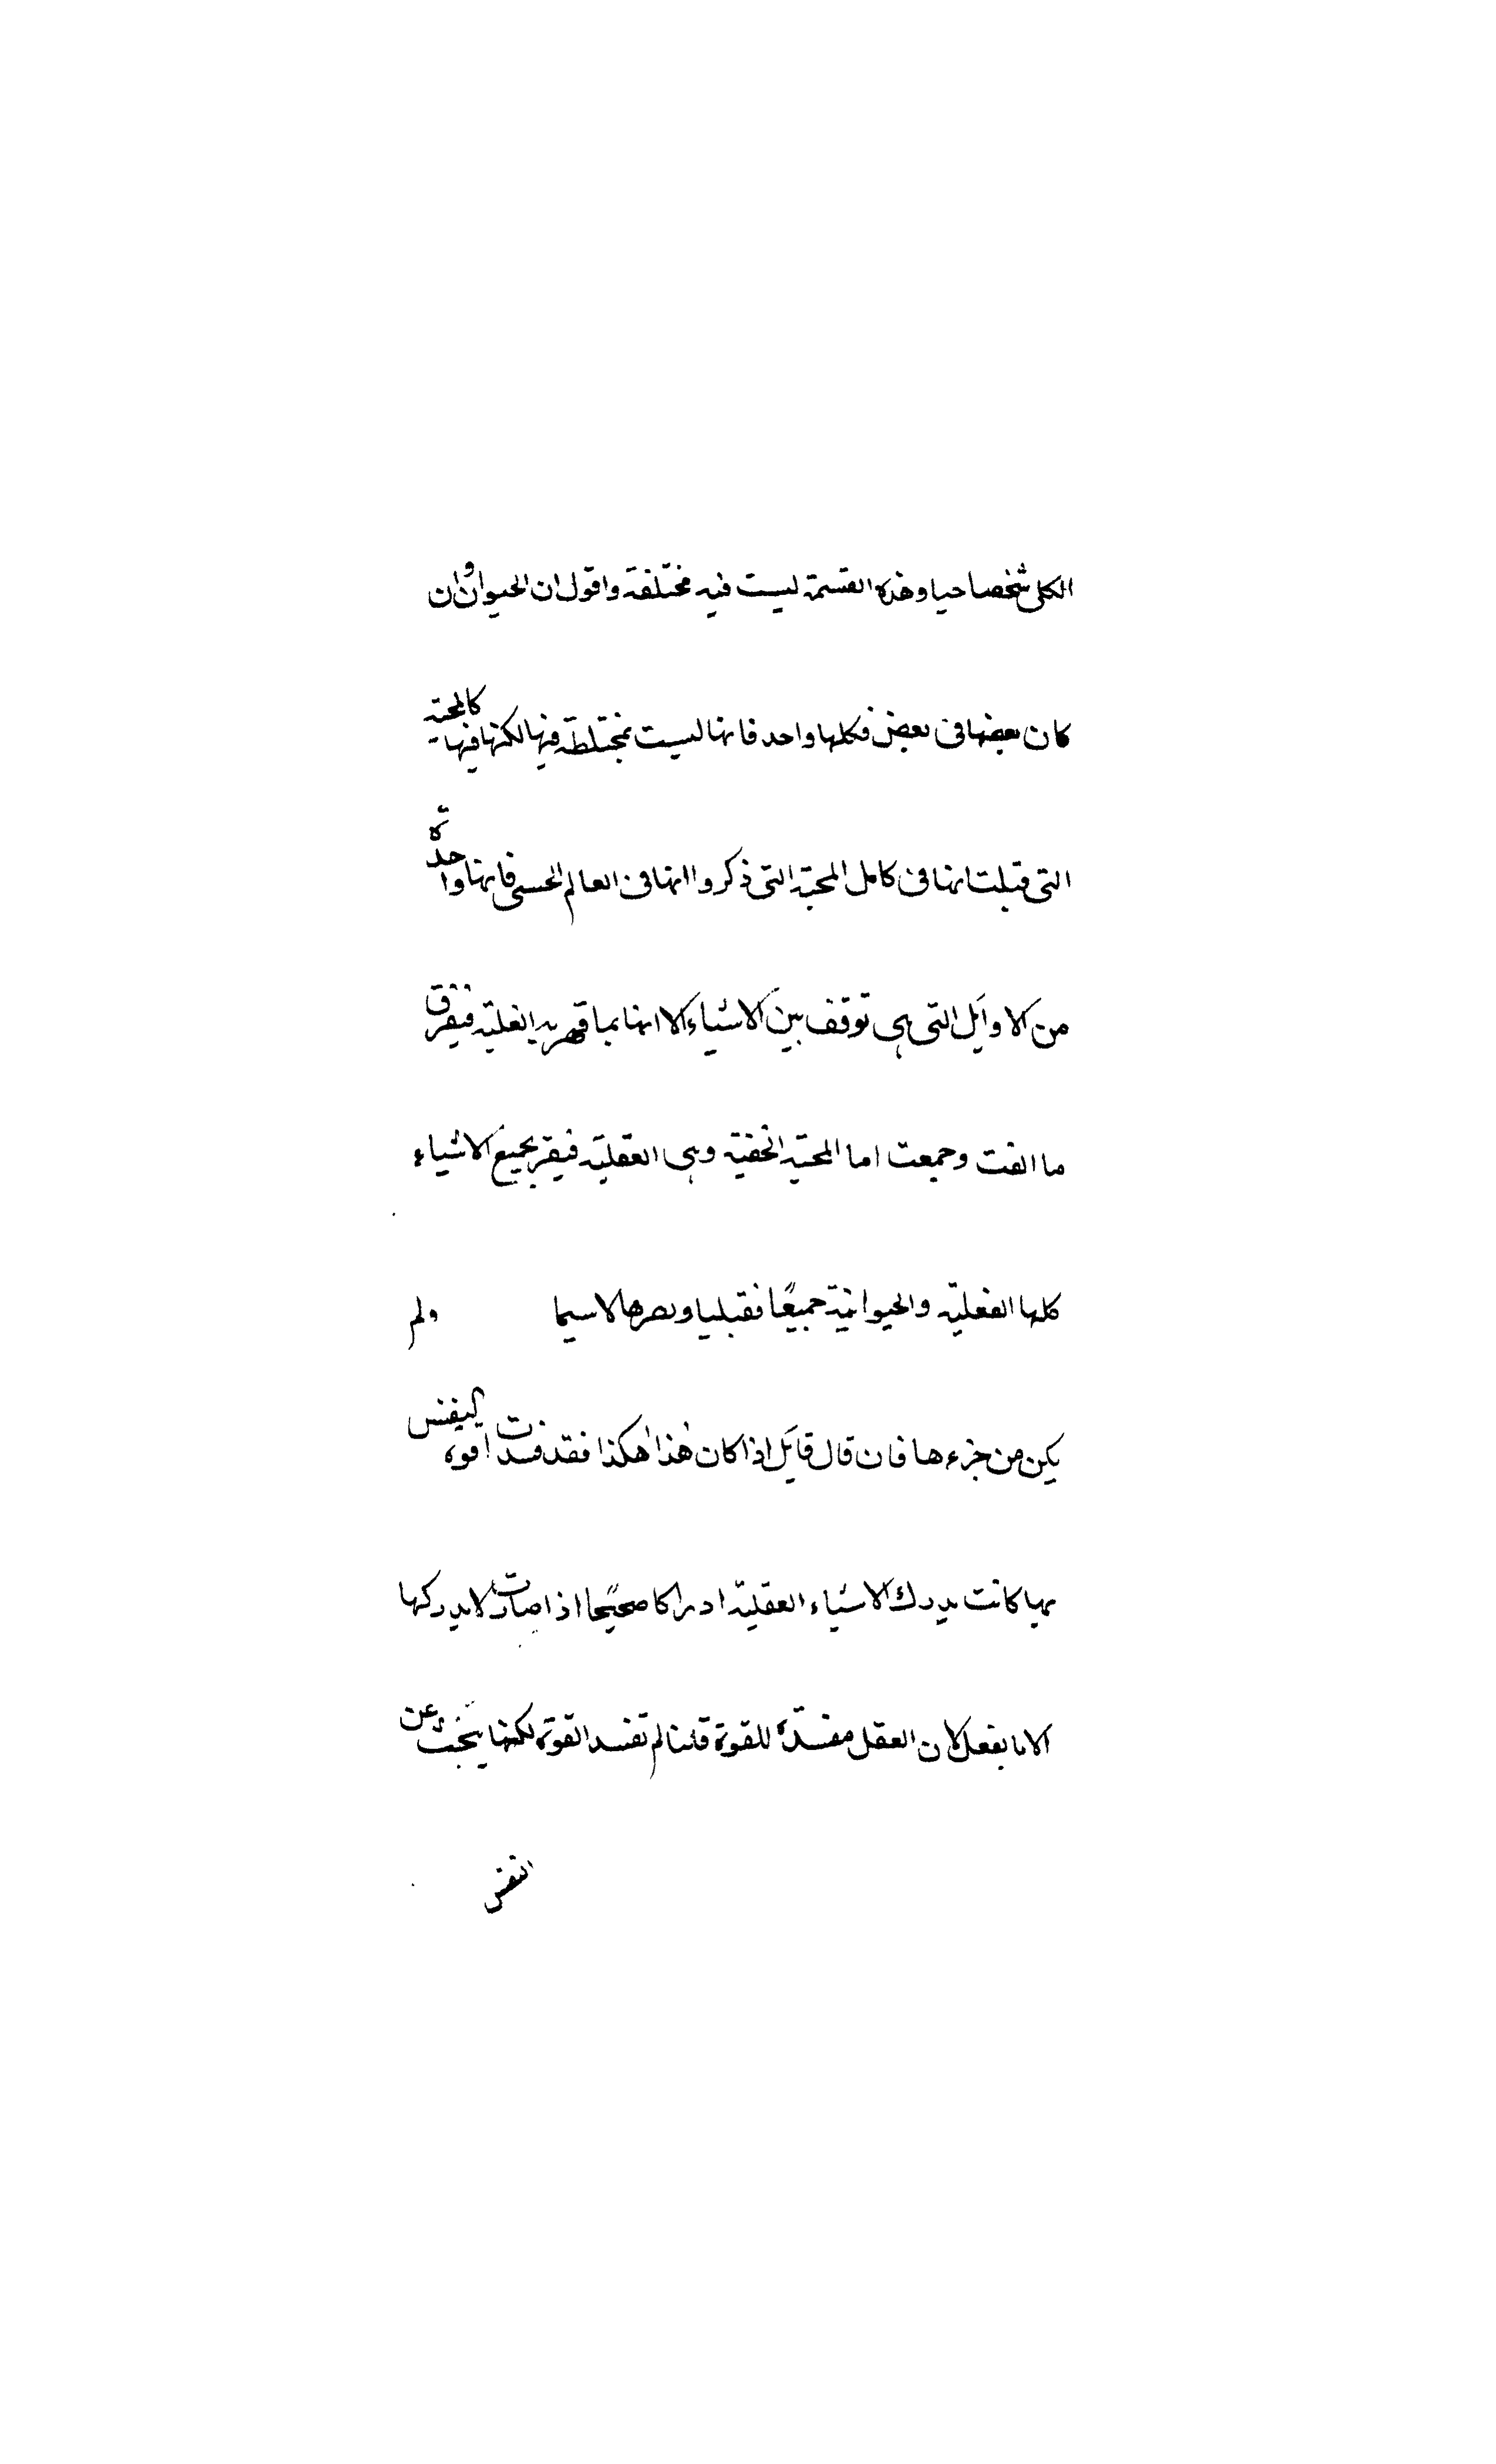 الكلى شخصا حيا وهذه القسمة ليست فيه مختلفة واقول ان الحيوان وان
كان بعضها فى بعض فكلها واحد فانها ليست بمختلطة فيها لكنها فيها كالمحبة
التى قبلت انها فى كامل المحبة التى ذكروا انها فى العالم الحسى فانها واحدة
من الاوايل التى هى توقف بين الاشياء الا انها بما قهر به الغلبة فيفرق
ما الفت وجمعت اما المحبة الخفية وهى العقلية فيقر بجميع الاشياء
كلها الفعلية والحيوانية جميعًا فقبليا وبصرها لاسيما ولم
يكن من جزء ها فان قال قايل اذا كان هذا هكذا فقد فسدت اقوه النفس
بها كانت يدرك الاشياء العقلية ادراكا صحيحًا اذا صارت لا يدركها
الا بفعل لان العقل مفسدة للقوة قلنا لم تفسد القوة لكنها يجب عن
النفس